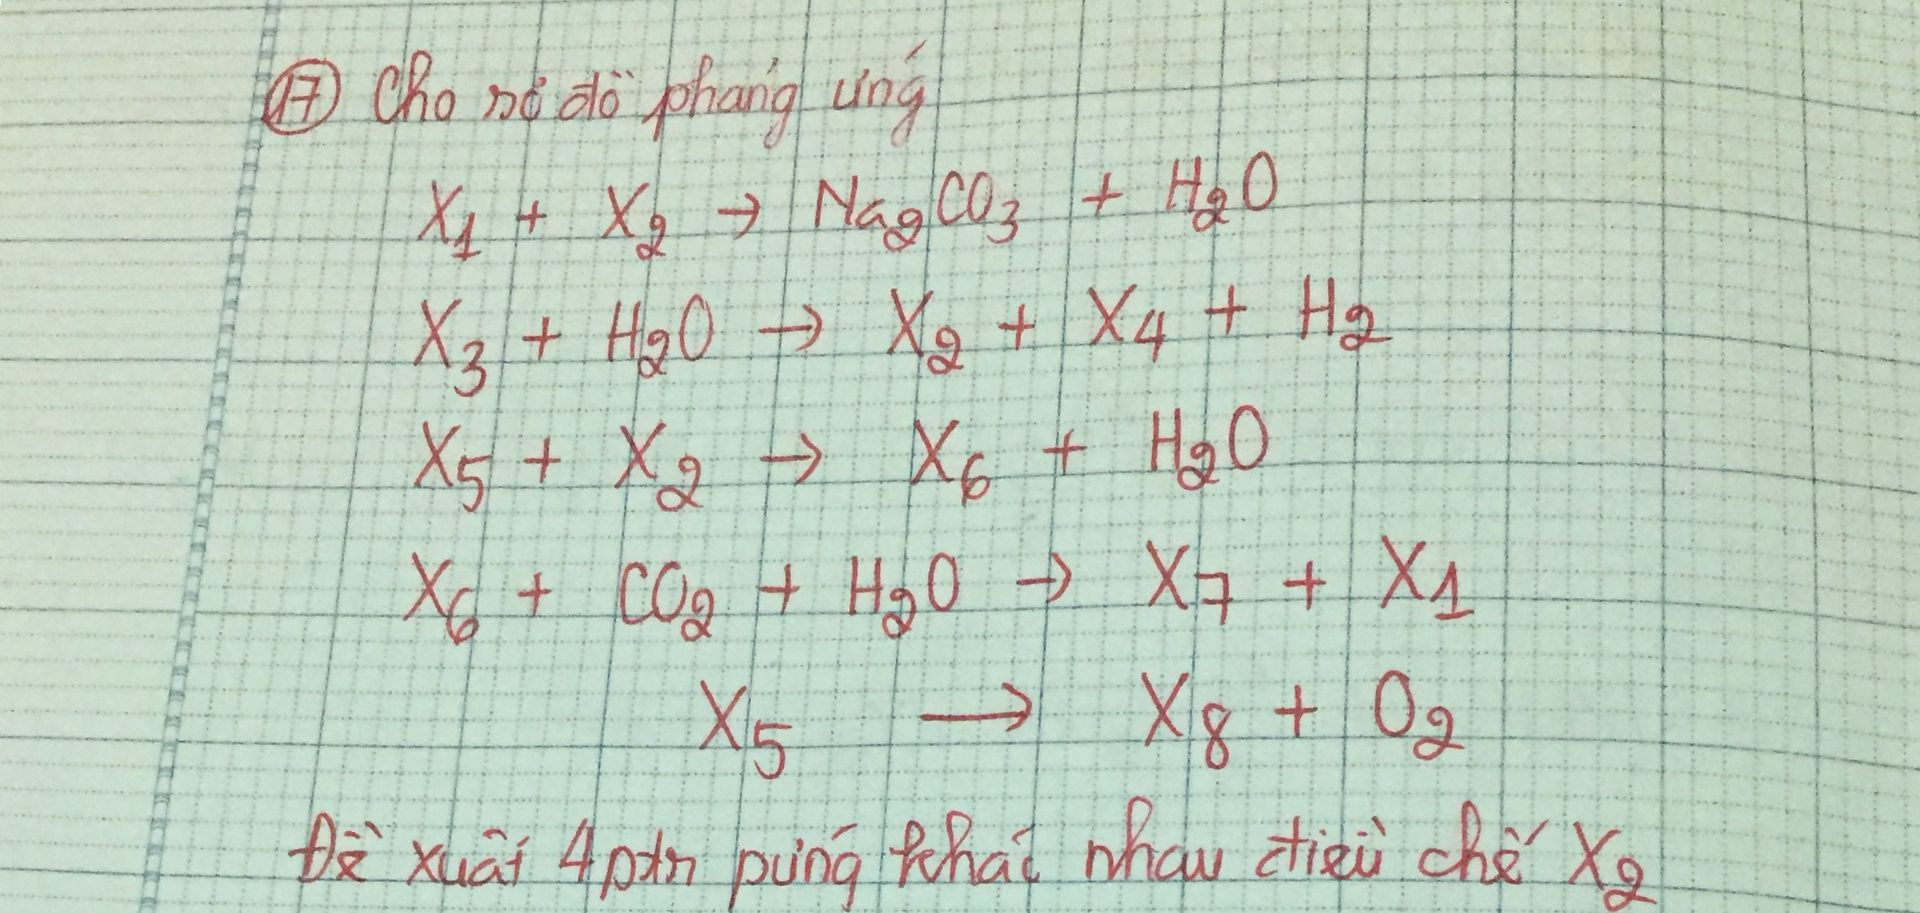 17 Cho sơ đồ phảng ứng
X₁ + X₂ → Na₂CO₃ + H₂O
X₃ + H₂O → X₂ + X₄ + H₂
X₅ + X₂ → X₆ + H₂O
X₆ + CO₂ + H₂O → X₇ + X₁
X₅ → X₈ + O₂
Đề xuất 4 ptr pứng khác nhau điều chế X₂